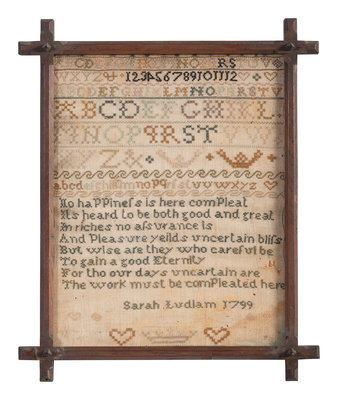 CD RS
WXYZ& 123456789101112
BCDEFGHIKLMNOPQRSTV
ABCDEFGHIKL
MNOPQRST
Z&
abcdefghiklmnopqrsſtuvwxyz
No haPPineſs is here comPleat
Its heard to be both good and great
In riches no aſsurance is
And Pleasure yeilds uncertain bliſs
But wise are they who careful be
To gain a good Eternity
For tho our days uncartain are
The work must be comPleated here
Sarah Ludlam 1799